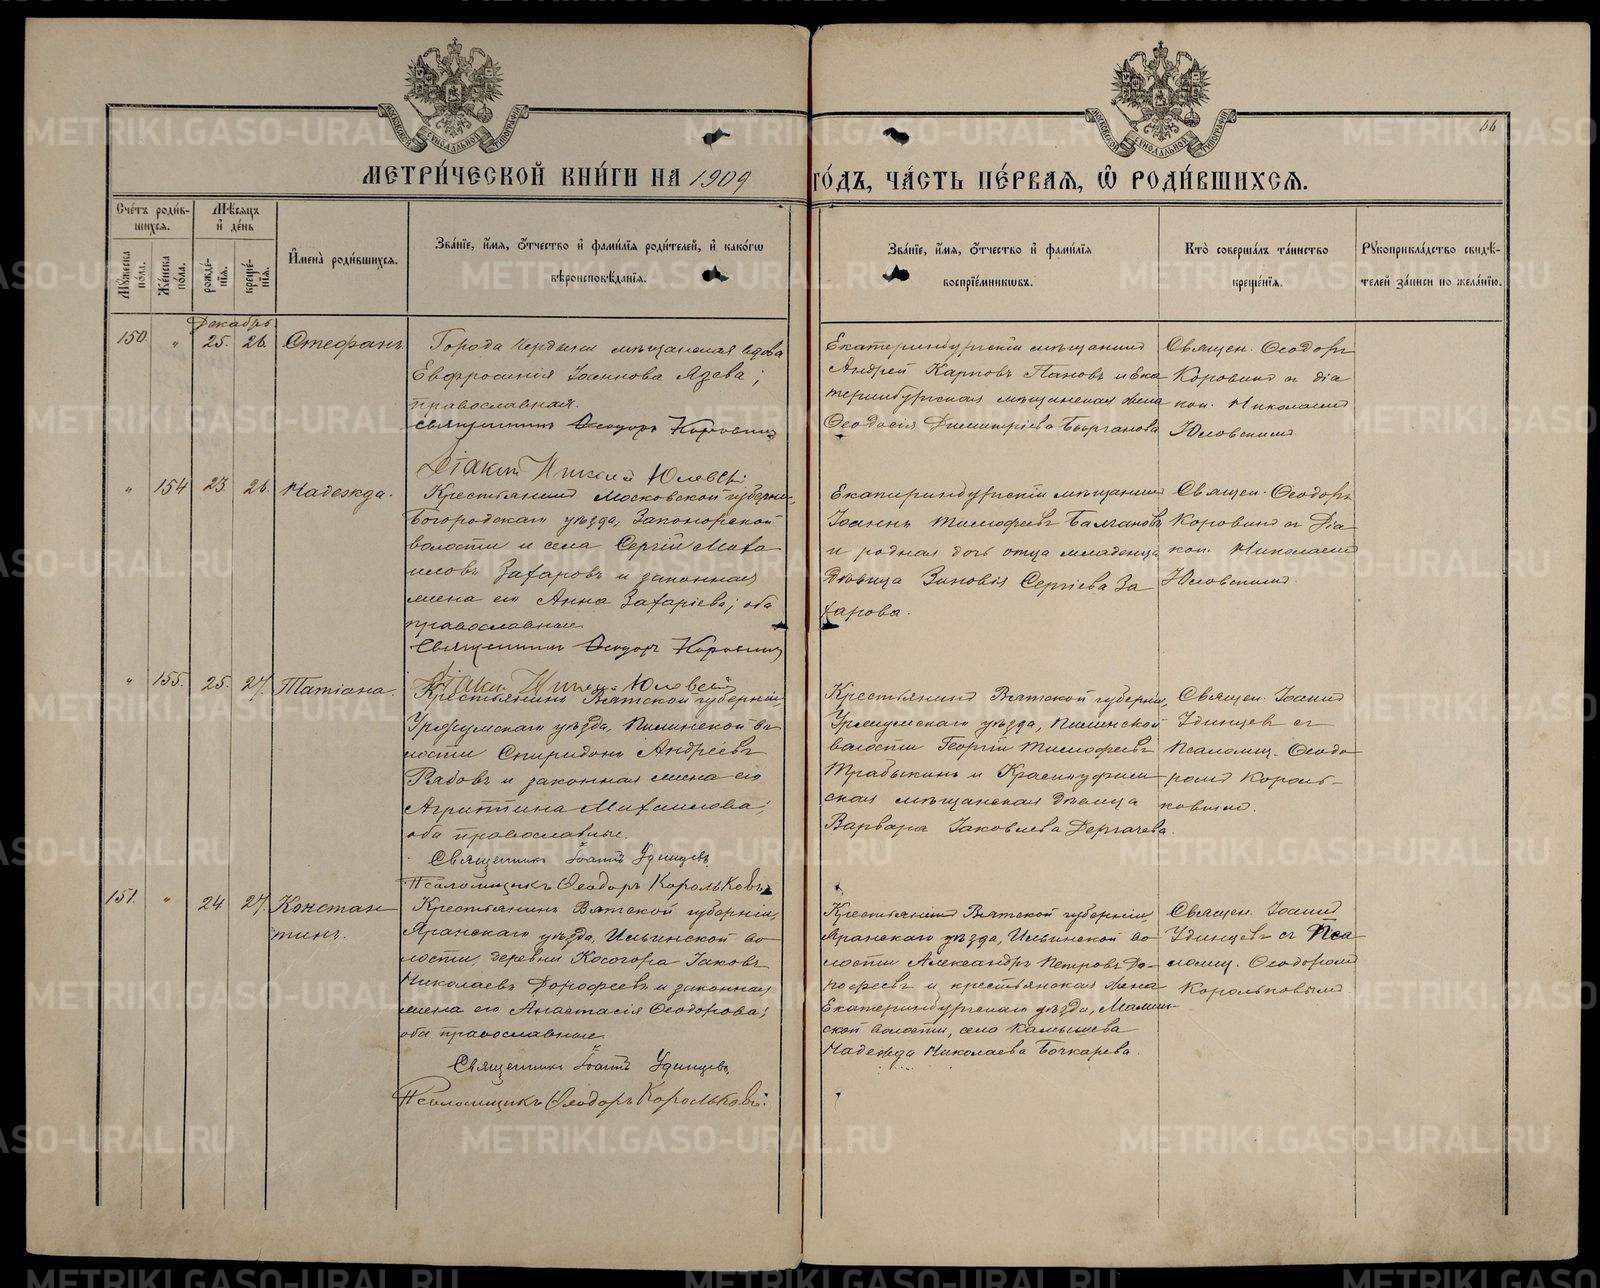 66
МЕТРИ́ЧЕСКОЙ КНИ́ГИ НА 1909 ГО́ДЪ, ЧА́СТЬ ПЕ́РВАЯ, Ѡ҆ РОДИ́ВШИХСѦ.
МОСКОВСКОЙ СУНОДАЛЬНОЙ ТИПОГРАФІИ
МОСКОВСКОЙ СУНОДАЛЬНОЙ ТИПОГРАФІИ
Сче́тъ роди́в-
шихсѧ.
Мꙋ́жеска по́ла.
Же́нска по́ла.
Мѣ́сѧцъ и҆ де́нь
рожде́-
нїѧ.
креще́-
нїѧ.
И҆мена̀ роди́вшихсѧ.
Зва́нїе, и҆́мѧ, ѻ҆́тчество и҆ фами́лїѧ роди́телей, и҆ како́гѡ
вѣроисповѣ́данїѧ.
Зва́нїе, и҆́мѧ, ѻ҆́тчество и҆ фами́лїѧ
воспрїе́мникѡвъ.
Кто̀ соверша́лъ та́инство
креще́нїѧ.
Рꙋкоприкла́дство свидѣ́-
телей за́писи по жела́нїю.
Декабрь
150. " 25. 26. Стефанъ.
Города Чердыни мѣщанская вдова
Евфросинія Іоаннова Язева;
православная.
Священникъ Ѳеодоръ Коровинъ
Діаконъ Николай Юловскій
Екатеринбургскій мѣщанинъ
Андрей Карповъ Пановъ и Ека
теринбургская мѣщанская жена
Ѳеодосія Димитріева
Священ. Ѳеодоръ
Коровинъ съ діа
кон. Николаемъ
Юловскимъ.
" 154 23 26. Надежда.
Крестьянинъ Московской губерніи,
Богородскаго уѣзда, Запонорской
волости и села Сергій Миха
иловъ Захаровъ и законная
жена его Анна Захаріева; оба
православные
Священникъ Ѳеодоръ Коровинъ
Діаконъ Николай Юловскій
Екатеринбургскій мѣщанинъ
Іоаннъ Тимоѳеевъ Балчановъ
и родная дочь отца младенца
дѣвица Зиновія Сергіева За
харова.
Священ. Ѳеодоръ
Коровинъ съ Діа
кон. Николаемъ
Юловскимъ.
" 155. 25. 27. Татіана.
Крестьянинъ Вятской губерніи,
Уржумскаго уѣзда, Пилинской во
лости Спиридонъ Андреевъ
Рябовъ и законная жена его
Агриппина Михаилова;
оба православные.
Священникъ Іоаннъ Удинцевъ
Псаломщикъ Ѳеодоръ Корольковъ
Крестьянинъ Вятской губерніи,
Уржумскаго уѣзда, Пилинской
волости Георгій Тимоѳеевъ
Трабыкинъ и Красноуфим
ская мѣщанская дѣвица
Варвара Іаковлева Дергачева.
Священ. Іоаннъ
Удинцевъ съ
Псаломщ. Ѳеодо
ромъ Король-
ковымъ.
151. " 24. 27. Констан
тинъ.
Крестьянинъ Вятской губерніи,
Яранскаго уѣзда, Ильинской во
лости, деревни Косогора Іаковъ
Николаевъ Дорофеевъ и законная
жена его Анастасія Ѳеодорова;
оба православные.
Священникъ Іоаннъ Удинцевъ
Псаломщикъ Ѳеодоръ Корольковъ.
Крестьянинъ Вятской губерніи
Яранскаго уѣзда, Ильинской во
лости Александръ Петровъ До-
рофеевъ и крестьянская жена
Екатеринбургскаго уѣзда, Мамин-
ской волости, села Камышева
Надежда Николаева Бочкарева.
Священ. Іоаннъ
Удинцевъ съ Пса
ломщ. Ѳеодоромъ
Корольковымъ
METRIKI.GASO-URAL.RU